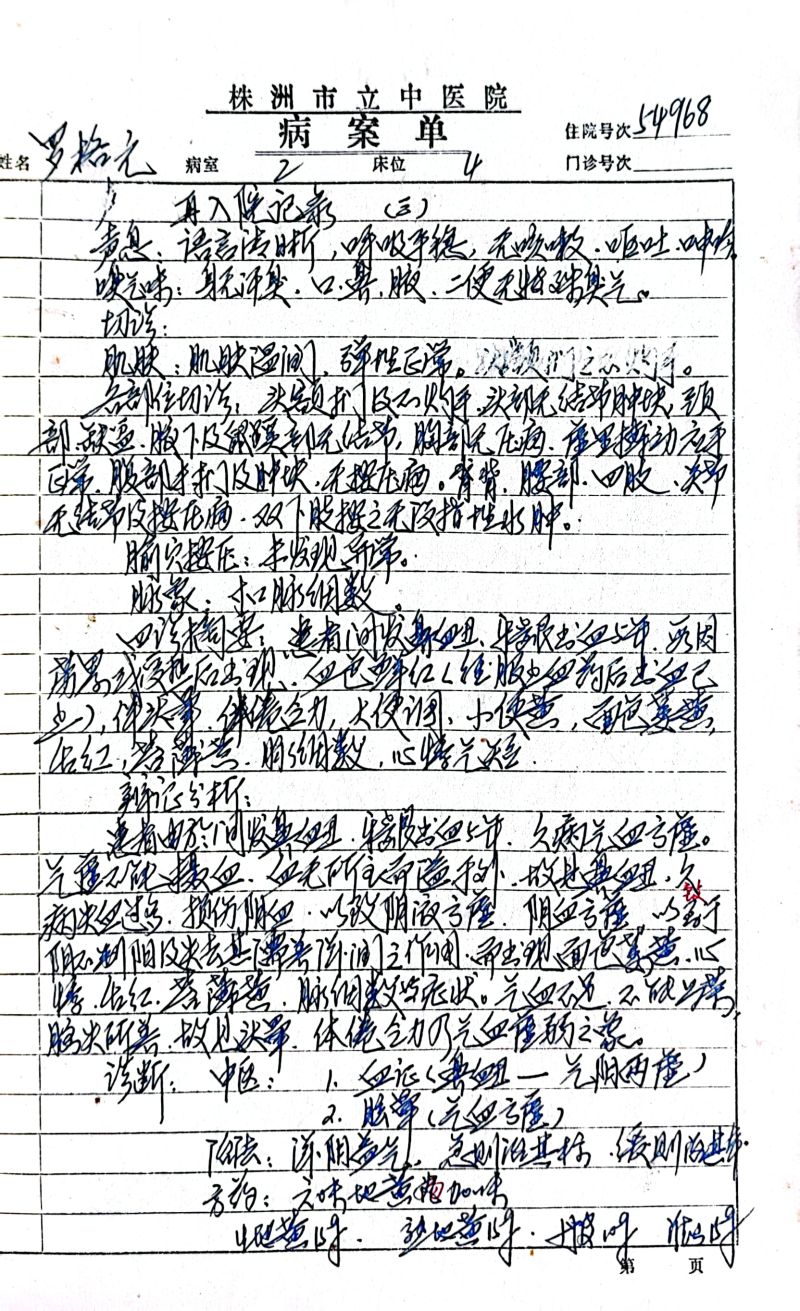 株洲市立中医院
病案单
住院号次 54968
姓名 罗格元 病室 2 床位 4 门诊号次
再入院记录 (三)
声息：语言清晰，呼吸平稳，无咳嗽、呕吐、呻吟。
嗅气味：身无汗臭、口、鼻、腋、二便无特殊臭气。
切诊：
肌肤：肌肤温润，弹性正常。
各部位切诊：头额扪及不灼手，头部无结节肿块，颈
部、缺盆、腋下及鼠蹊部无结节，胸部无压痛，虚里搏动应手
正常，腹部未扪及肿块、无按压痛。脊背、腰部、四肢、关节
无结节及按压痛，双下肢按之无凹指性水肿。
腧穴按压：未发现异常。
脉象：寸口脉细数。
四诊摘要：患者间发鼻衄、牙龈出血5年，
或受热后出现，血色鲜红（经服止血药后出血已
少），伴头晕，体倦乏力，大便调，小便黄，面色萎黄，
舌红，苔薄黄，脉细数，心悸气短。
辨证分析：
患者由于间发鼻衄、牙龈出血5年，久病气血亏虚。
气虚不能摄血，血无所主而溢于外，故见鼻衄，久
病失血过多，损伤阴血，以致阴液亏虚，阴血亏虚，以至于
阴不制阳及失去其濡养滋润之作用，而出现面色萎黄、心
悸、舌红、苔薄黄、脉细数等症状。气血不足，不能上荣，
脑失所养，故见头晕，体倦乏力乃气血虚弱之象。
诊断：中医：1. 血证（鼻衄—气阴两虚）
2. 眩晕（气血亏虚）
治法：滋阴益气，急则治其标，缓则治其本。
方药：六味地黄加味
生地黄15g、熟地黄15g、丹皮10g 淮山15g
第 页